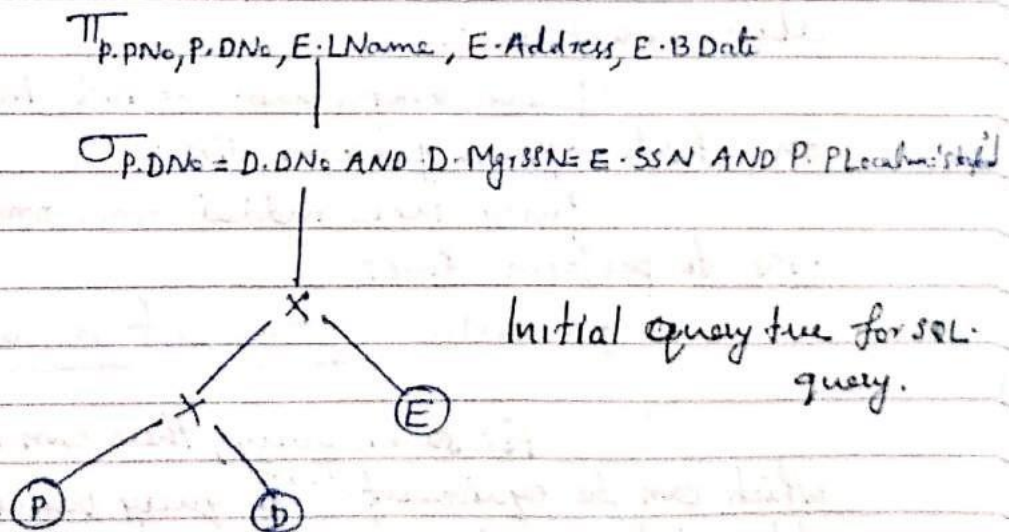 π P.PNo, P.DNo, E.LName, E.Address, E.BDate
σ P.DNo = D.DNo AND D.MgrSSN = E.SSN AND P.PLocation='
X
Initial query tree for SQL
query.
X
E
P
D